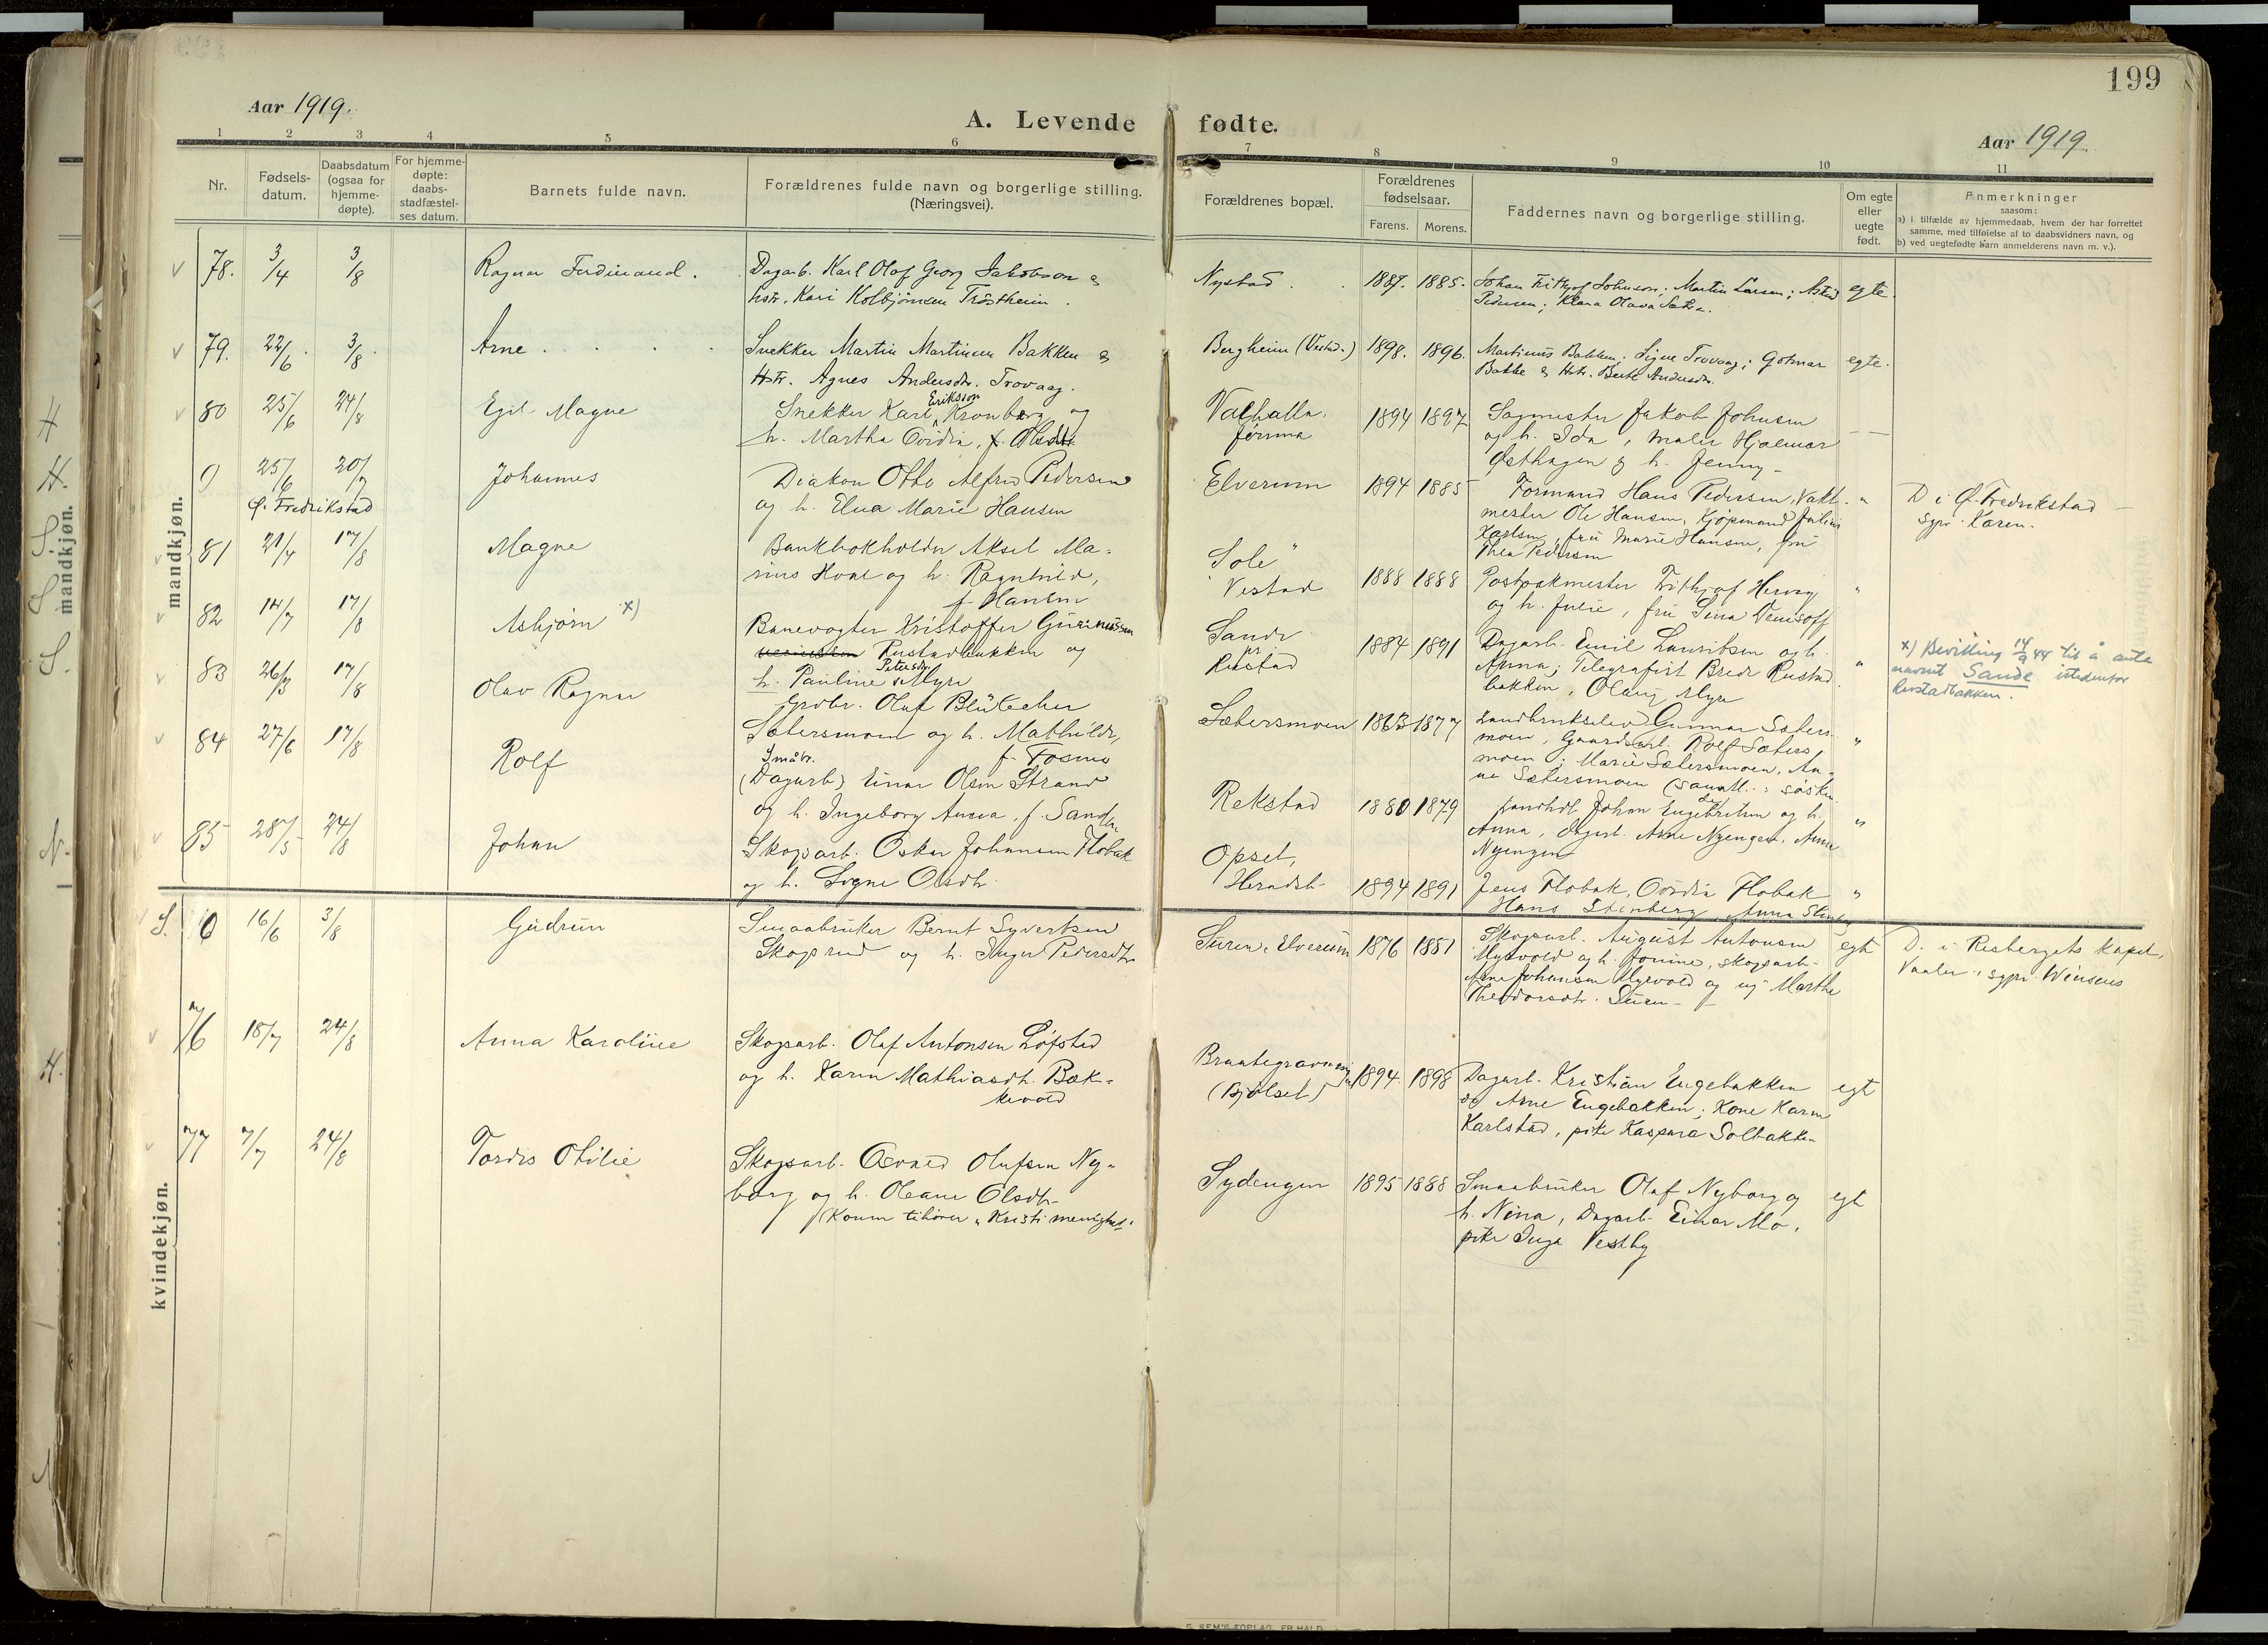 199
Aar 1919.
A. Levende fødte.
Aar 1919.
1 2 3 4 5 6 7 8 9 10 11
Nr.
Fødsels-
datum.
Daabsdatum
(ogsaa for
hjemme-
døpte).
For hjemme-
døpte:
daabs-
stadfæstel-
ses datum.
Barnets fulde navn.
Forældrenes fulde navn og borgerlige stilling.
(Næringsvei).
Forældrenes bopæl.
Forældrenes
fødselsaar.
Farens. Morens.
Faddernes navn og borgerlige stilling.
Om egte
eller
uegte
født.
Anmerkninger
saasom:
a) i tilfælde av hjemmedaab, hvem der har forrettet
samme, med tilføielse af to daabsvidners navn, og
b) ved uegtefødte barn anmelderens navn m. v.).
mandkjøn.
mandkjøn.
78. 3/4 3/8 Ragnar Ferdinand.
Dagarb. Karl Olaf Georg Jakobson &
hstr. Kari Kolbjörnsen Tröstheim.
Nystad. 1887. 1885.
Johan Frithjof Johnson; Martin Larsen; Astrid
Pedersen; Klara Olava Sætre.
egte.
79. 22/6 3/8 Arne
Snekker Martin Martinsen Bakken &
Hstr. Agnes Andersdtr. Trovaag.
Bergheim (Vestad.) 1898. 1896.
Martinius Bakken; Signe Trovaag; Gotmar
Bakke & Hstr. Berte Andersdtr.
egte.
80 25/6 24/8 Egil Magne
Snekker Karl Eriksson Kronberg og
h. Martha Ovidia, f. Olsdtr.
Valhalla,
Jørnna
1894 1897
Sagmester Jakob Johnsen
og h. Ida, maler Hjalmar
Østhagen & h. Jenny
0 25/6 20/7 Johannes
Ø. Fredrikstad
Diakon Otto Alfred Pedersen
og h. Elna Marie Hansen
Elverum 1894 1885
Formand Hans Pedersen, Vakt-
mester Ole Hansen, Kjøpmand Julius
Karlsen, frü Marie Hansen, frü
Thea Pedersen
"
D i Ø. Fredrikstad
sgpr. Karen.
81 21/4 17/8 Magne
Bankbokholder Aksel Ma-
rius Hoel og h. Ragnhild,
f. Hansen
Sole
Vestad
1888 1888
Postpakmester Frithjof Hervig
og h. Julie, frü Sina Wenisoff
"
82 14/7 17/8 Asbjørn x)
Banevogter Kristoffer Gunerüssen
Rustadbakken og
h. Pauline Petersdtr. Myre
Sande
pr.
Rustad
1884 1891
Dagarb. Emil Lauritsen og h.
Anna; Telegrafist Brede Rustad-
bakken, Olaug Myre
"
x) Bevilling 14/9 44 til å anta
navnet Sande istedenfor
Rustadbakken.
83 26/3 17/8 Olav Ragnar
Grdbr. Olaf Blütecher
Sætersmoen og h. Mathilde,
f. Fosmo
Sætersmoen 1863 1877
Landbrukselev Gunnar Sæters-
moen, Gaardsarb. Rolf Sæters-
moen; Marie Sætersmoen, An-
ne Sætersmoen (samtl.: søsken
"
84 27/6 17/8 Rolf
Småbr.
(Dagarb) Einar Olsen Strand
og h. Ingeborg Anna, f. Sanden
Rekstad 1880 1879
Landhdl. Johan Engebretsen og h.
Anna, dagarb. Arne Nyengen, Anna
Nyengen
"
85 28/5 24/8 Johan
Skogsarb. Oskar Johansen Flobak
og h. Signe Olsdtr.
Opset,
Heradsb.
1894 1891
Jens Flobak, Ovidia Flobak
Hans Stenberg, Anna Stenberg
"
kvindekjøn.
S. 0 16/6 3/8 Gudrun
Smaabrüker Bernt Syvertsen
Skogsrud og h. Inger Pedersdtr.
Süren, Elverüm 1876 1881
Skogsarb. August Antonsen
Myrvold og h. Jonine, skogsarb.
Arne Johansen Myrvold og ug Marthe
Theodorsdtr. Süren
egt
D. i Risbergets kapel,
Vaaler, sgpr. Winsens
76 18/7 24/8 Anna Karoline
Skogsarb. Olaf Antonsen Løfsted
og h. Karen Mathiasdtr. Bæk-
kevold
(Bjølset) 1894. 1898
Dagarb. Kristian Engebakken
og Arne Engebakken; Kone Karen
Karlstad, pike Kaspara Solbakken
egt
77 7/7 24/8 Tordis Otilie
Skogsarb. Osvald Olufsen Ny-
borg og h. Oleane Olsdtr.
(Konen tilhører "Kristi menighet"
Sydengen 1895 1888
Smaabrüker Olaf Nyborg og
h. Nina, Dagarb. Einar Mo,
pike Inga Vestby
egt